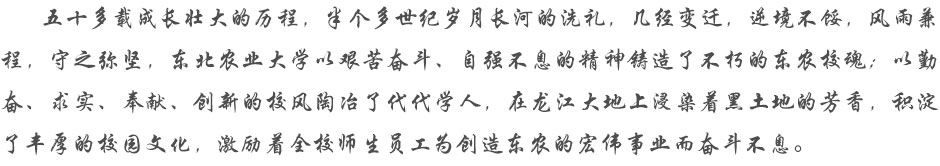 五十多载成长壮大的历程，半个多世纪岁月长河的洗礼，几经变迁，逆境不馁，风雨兼
程，守之弥坚，东北农业大学以艰苦奋斗、自强不息的精神铸造了不朽的东农校魂；以勤
奋、求实、奉献、创新的校风陶冶了代代学人，在龙江大地上浸染着黑土地的芳香，积淀
了丰厚的校园文化，激励着全校师生员工为创造东农的宏伟事业而奋斗不息。